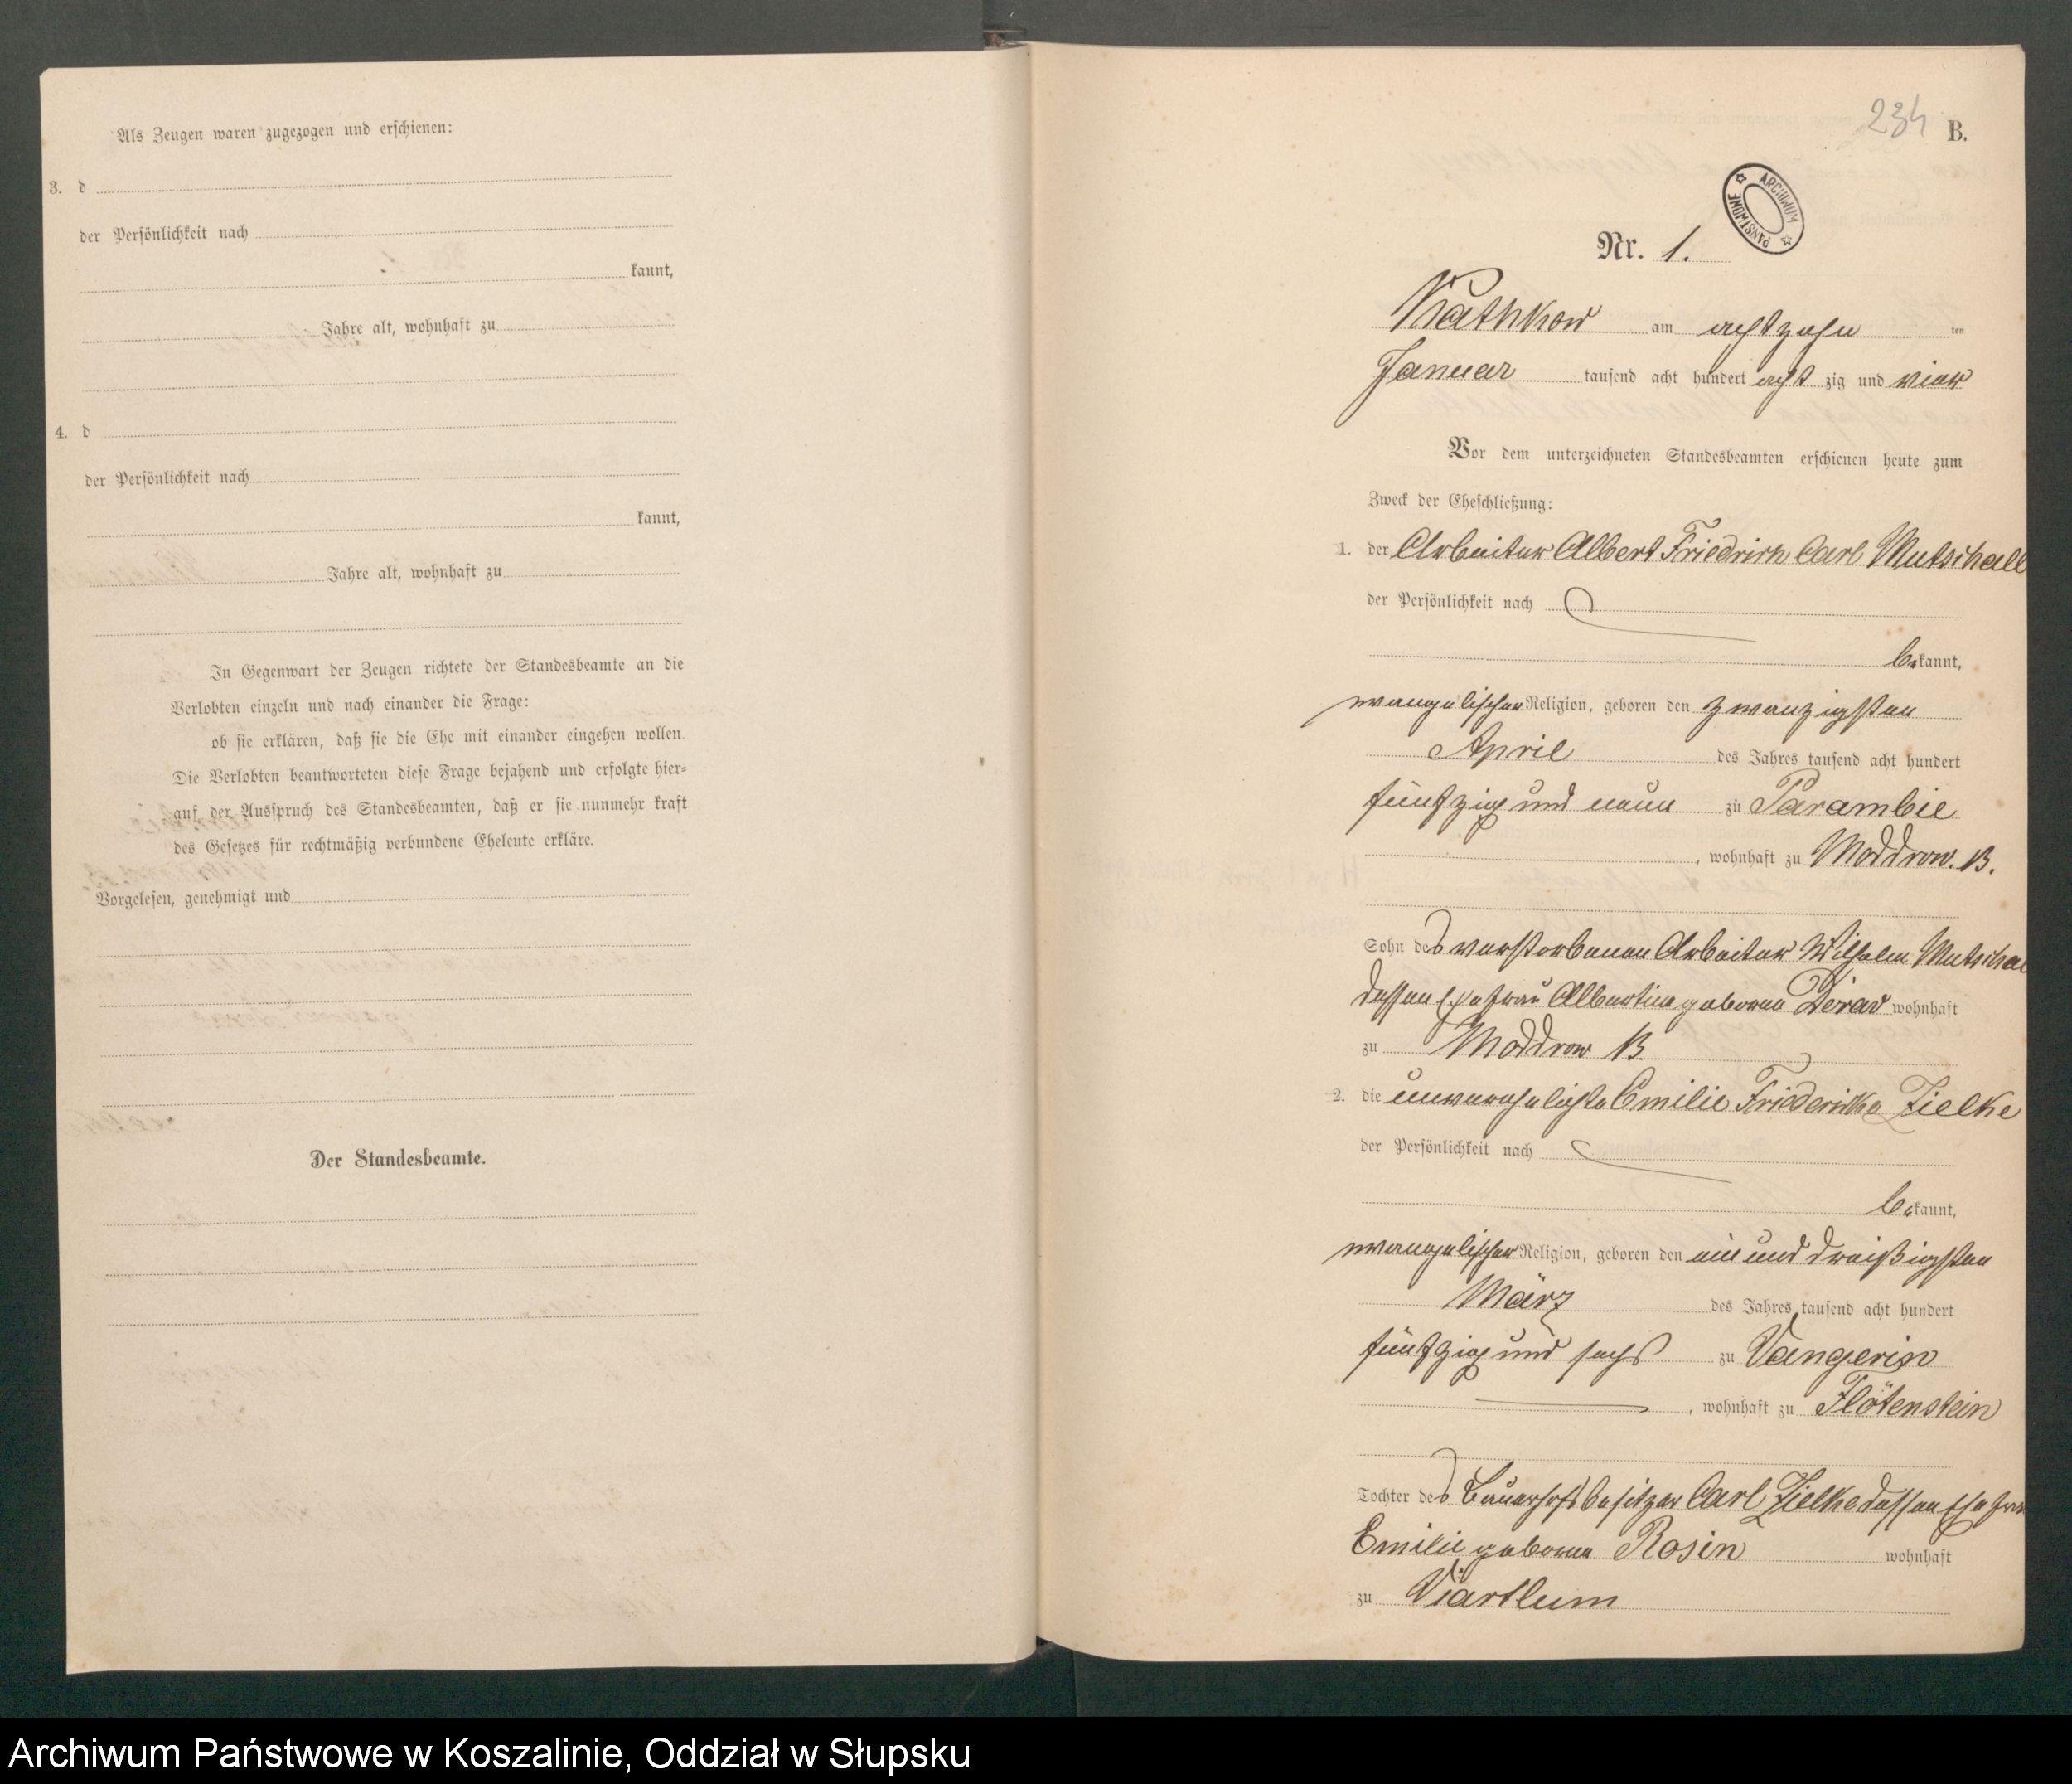 Als Zeugen waren zugezogen und erschienen:
3. d
der Persönlichkeit nach
kannt,
Jahre alt, wohnhaft zu
4. d
der Persönlichkeit nach
kannt,
Jahre alt, wohnhaft zu
In Gegenwart der Zeugen richtete der Standesbeamte an die
Verlobten einzeln und nach einander die Frage:
ob sie erklären, daß sie die Ehe mit einander eingehen wollen.
Die Verlobten beantworteten diese Frage bejahend und erfolgte hier-
auf der Ausspruch des Standesbeamten, daß er sie nunmehr kraft
des Gesetzes für rechtmäßig verbundene Eheleute erkläre.
Vorgelesen, genehmigt und
Der Standesbeamte.
234 B.
ARCHIWUM PAŃSTWOWE
Nr. 1.
Kathkow am achtzehn ten
Januar tausend acht hundert acht zig und vier
Vor dem unterzeichneten Standesbeamten erschienen heute zum
Zweck der Eheschließung:
1. der Arbeiter Albert Friedrich Carl Mutschall
der Persönlichkeit nach
be kannt,
evangelischer Religion, geboren den zwanzigsten
April des Jahres tausend acht hundert
fünfzig und neun zu Parambie
, wohnhaft zu Moddrow. B.
Sohn des verstorbenen Arbeiter Wilhelm Mutschal
dessen Ehefrau Albertine geborene wohnhaft
zu Moddrow B.
2. die unverehelichte Emilie Friederike Zielke
der Persönlichkeit nach
be kannt,
evangelischer Religion, geboren den ein und dreißigsten
März des Jahres tausend acht hundert
fünfzig und sechs zu Vangerin
, wohnhaft zu Flötenstein
Tochter des Bauerhofsbesitzer Carl Zielke dessen Ehefrau
Emilie geborene Rosin wohnhaft
zu Viartlum
Archiwum Państwowe w Koszalinie, Oddział w Słupsku